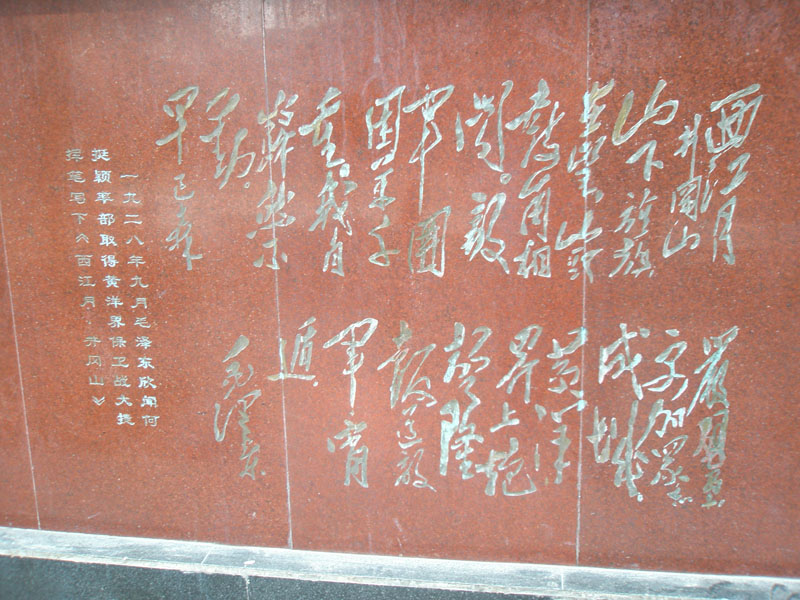 西江月
井岡山
山下旌旗
在望山頭
鼓角相
闻。敵
軍圍
困万千
重，我自
巋然不
動。
早已森
嚴壁壘
更加眾志
成城。
黄洋
界上炮
聲隆
報道敵
軍宵
遁。
毛澤东
一九二八年九月毛泽东欣闻何
挺颖率部取得黄洋界保卫战大捷
挥笔写下《西江月·井冈山》